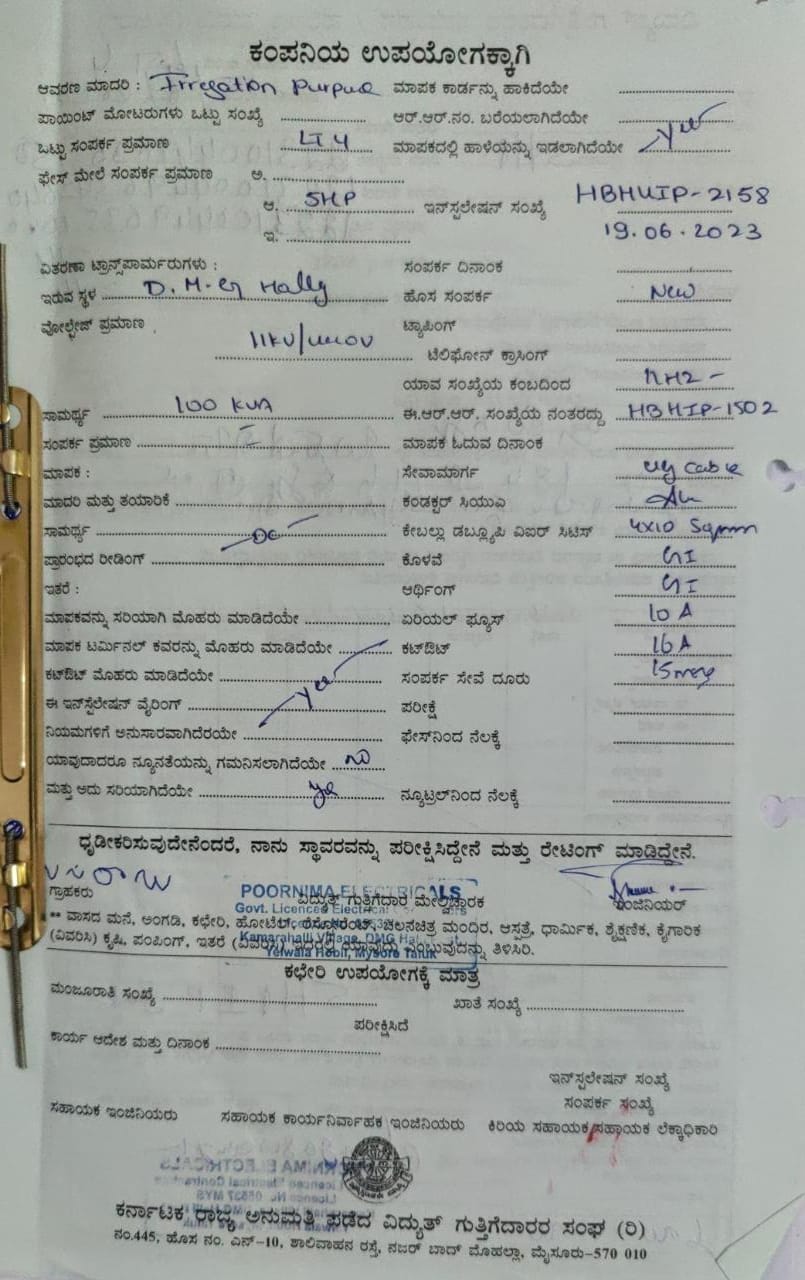 ಕಂಪನಿಯ ಉಪಯೋಗಕ್ಕಾಗಿ
ಆವರಣ ಮಾದರಿ : Irregation Purpuse ಮಾಪಕ ಕಾರ್ಡನ್ನು ಹಾಕಿದೆಯೇ ....................
ಪಾಯಿಂಟ್ ಮೋಟರುಗಳು ಒಟ್ಟು ಸಂಖ್ಯೆ .................... ಆರ್.ಆರ್.ನಂ. ಬರೆಯಲಾಗಿದೆಯೇ
ಒಟ್ಟು ಸಂಪರ್ಕ ಪ್ರಮಾಣ LT 4 ಮಾಪಕದಲ್ಲಿ ಹಾಳೆಯನ್ನು ಇಡಲಾಗಿದೆಯೇ Yes
ಫೇಸ್ ಮೇಲೆ ಸಂಪರ್ಕ ಪ್ರಮಾಣ ಅ. ....................
ಆ. 5HP ಇನ್‌ಸ್ಟಲೇಷನ್ ಸಂಖ್ಯೆ HBHUIP-2158
ಇ. .................... 19.06.2023
ವಿತರಣಾ ಟ್ರಾನ್ಸ್‌ಪಾರ್ಮರುಗಳು : ಸಂಪರ್ಕ ದಿನಾಂಕ ....................
ಇರುವ ಸ್ಥಳ D.M.G Hally ಹೊಸ ಸಂಪರ್ಕ New
ವೋಲ್ಟೇಜ್ ಪ್ರಮಾಣ ಟ್ಯಾಪಿಂಗ್ ....................
11KV/440V ಟೆಲಿಫೋನ್ ಕ್ರಾಸಿಂಗ್ ....................
ಯಾವ ಸಂಖ್ಯೆಯ ಕಂಬದಿಂದ
ಸಾಮರ್ಥ್ಯ 100 KVA ಈ.ಆರ್.ಆರ್. ಸಂಖ್ಯೆಯ ನಂತರದ್ದು HBHIP-1502
ಸಂಪರ್ಕ ಪ್ರಮಾಣ .................... ಮಾಪಕ ಓದುವ ದಿನಾಂಕ ....................
ಮಾಪಕ : ಸೇವಾಮಾರ್ಗ UG Cable
ಮಾದರಿ ಮತ್ತು ತಯಾರಿಕೆ .................... ಕಂಡಕ್ಟರ್ ಸಿಯುಎ Alu
ಸಾಮರ್ಥ್ಯ ಕೇಬಲ್ಲು ಡಬ್ಲ್ಯೂಪಿ ವಿಐರ್ ಸಿಟಿಸ್ 4x10 Sqmm
ಪ್ರಾರಂಭದ ರೀಡಿಂಗ್ .................... ಕೊಳವೆ GI
ಇತರೆ : ಆರ್ಥಿಂಗ್ GI
ಮಾಪಕವನ್ನು ಸರಿಯಾಗಿ ಮೊಹರು ಮಾಡಿದೆಯೇ .................... ಏರಿಯಲ್ ಫ್ಯೂಸ್ 10 A
ಮಾಪಕ ಟರ್ಮಿನಲ್ ಕವರನ್ನು ಮೊಹರು ಮಾಡಿದೆಯೇ .................... ಕಟ್‌ಔಟ್ 16A
ಕಟ್‌ಔಟ್ ಮೊಹರು ಮಾಡಿದೆಯೇ .................... ಸಂಪರ್ಕ ಸೇವೆ ದೂರು
ಈ ಇನ್‌ಸ್ಟೆಲೇಷನ್ ವೈರಿಂಗ್ Yes ಪರೀಕ್ಷೆ ....................
ನಿಯಮಗಳಿಗೆ ಅನುಸಾರವಾಗಿದೆರಯೇ .................... ಫೇಸ್‌ನಿಂದ ನೆಲಕ್ಕೆ ....................
ಯಾವುದಾದರೂ ನ್ಯೂನತೆಯನ್ನು ಗಮನಿಸಲಾಗಿದೆಯೇ No
ಮತ್ತು ಅದು ಸರಿಯಾಗಿದೆಯೇ Yes ನ್ಯೂಟ್ರಲ್‌ನಿಂದ ನೆಲಕ್ಕೆ ....................
ಧೃಡೀಕರಿಸುವುದೇನೆಂದರೆ, ನಾನು ಸ್ಥಾವರವನ್ನು ಪರೀಕ್ಷಿಸಿದ್ದೇನೆ ಮತ್ತು ರೇಟಿಂಗ್ ಮಾಡಿದ್ದೇನೆ.
POORNIMA ELECTRICALS
ಗ್ರಾಹಕರು ವಿದ್ಯುತ್ ಗುತ್ತಿಗೆದಾರ ಮೇಲ್ವಿಚಾರಕ ಇಂಜಿನಿಯರ್
Govt. Licenced Electrical
** ವಾಸದ ಮನೆ, ಅಂಗಡಿ, ಕಛೇರಿ, ಹೋಟೆಲ್, ರೆಸ್ಟೋರೆಂಟ್, ಚಲನಚಿತ್ರ ಮಂದಿರ, ಆಸ್ಪತ್ರೆ, ಧಾರ್ಮಿಕ, ಶೈಕ್ಷಣಿಕ, ಕೈಗಾರಿಕ
(ವಿವರಿಸಿ) ಕೃಷಿ, ಪಂಪಿಂಗ್, ಇತರೆ (ವಿವರಿಸಿ) ಇದರಲ್ಲಿ ಯಾವುದು ಎಂಬುವುದನ್ನು ತಿಳಿಸಿರಿ.
Kamarahalli Village, DMG Hal
Yelwala Hobli, Mysore Taluk
ಕಛೇರಿ ಉಪಯೋಗಕ್ಕೆ ಮಾತ್ರ
ಮಂಜೂರಾತಿ ಸಂಖ್ಯೆ .................... ಖಾತೆ ಸಂಖ್ಯೆ ....................
ಪರೀಕ್ಷಿಸಿದೆ
ಕಾರ್ಯ ಆದೇಶ ಮತ್ತು ದಿನಾಂಕ ....................
ಇನ್‌ಸ್ಟಲೇಷನ್ ಸಂಖ್ಯೆ
ಸಂಪರ್ಕ ಸಂಖ್ಯೆ
ಸಹಾಯಕ ಇಂಜಿನಿಯರು ಸಹಾಯಕ ಕಾರ್ಯನಿರ್ವಾಹಕ ಇಂಜಿನಿಯರು ಕಿರಿಯ ಸಹಾಯಕ/ಸಹಾಯಕ ಲೆಕ್ಕಾಧಿಕಾರಿ
ಕರ್ನಾಟಕ ರಾಜ್ಯ ಅನುಮತಿ ಪಡೆದ ವಿದ್ಯುತ್ ಗುತ್ತಿಗೆದಾರರ ಸಂಘ (ರಿ)
ನಂ.445, ಹೊಸ ನಂ. ಎನ್-10, ಶಾಲಿವಾಹನ ರಸ್ತೆ, ನಜರ್ ಬಾದ್ ಮೊಹಲ್ಲಾ, ಮೈಸೂರು-570 010